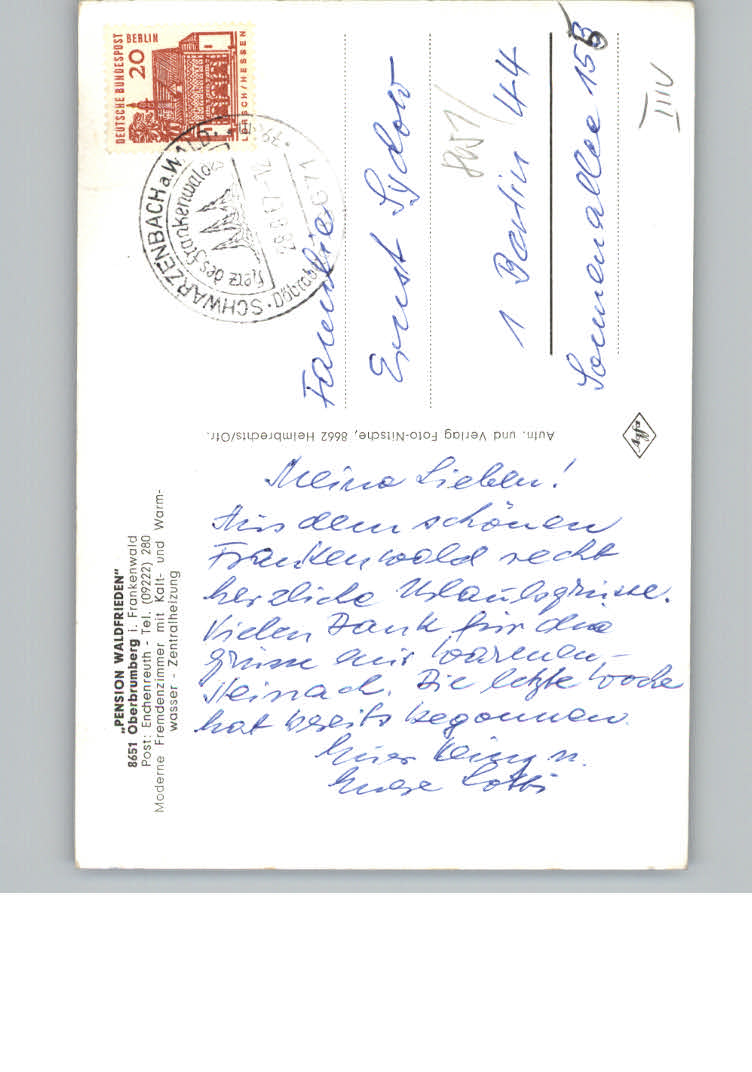 „PENSION WALDFRIEDEN“
8651 Oberbrumberg i. Frankenwald
Post: Enchenreuth - Tel. (09222) 280
Moderne Fremdenzimmer mit Kalt- und Warm-
wasser - Zentralheizung
Meine Lieben!
Aus dem schönen
Frankenwald recht
herzliche Urlaubsgrüsse.
Vielen Dank für die
Grüsse aus Warmen-
Steinach. Die letzte Woche
hat bereits begonnen.
Euer Heinz u.
Eure Lotti
Aufn. und Verlag Foto-Nitsche, 8662 Helmbrechts/Ofr.
DEUTSCHE BUNDESPOST BERLIN
20
LORSCH/HESSEN
SCHWARZENBACH a. WALD
Herz des Frankenwaldes
Döbraberg
Familie
Ernst Sydow
1 Berlin 44
Sonnenallee 155